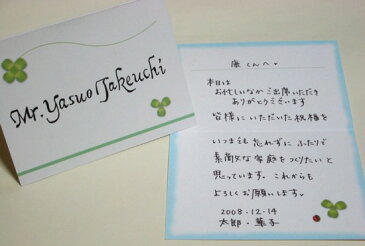 Mr. Yasuo Takeuchi
康くんへ
本日は
お忙しいなかご出席いただき
ありがとうございます
皆様にいただいた祝福を
いつまでも忘れずにふたりで
素敵な家庭をつくりたいと
思っています。これからも
よろしくお願いします。
2008.12.14
太郎・華子